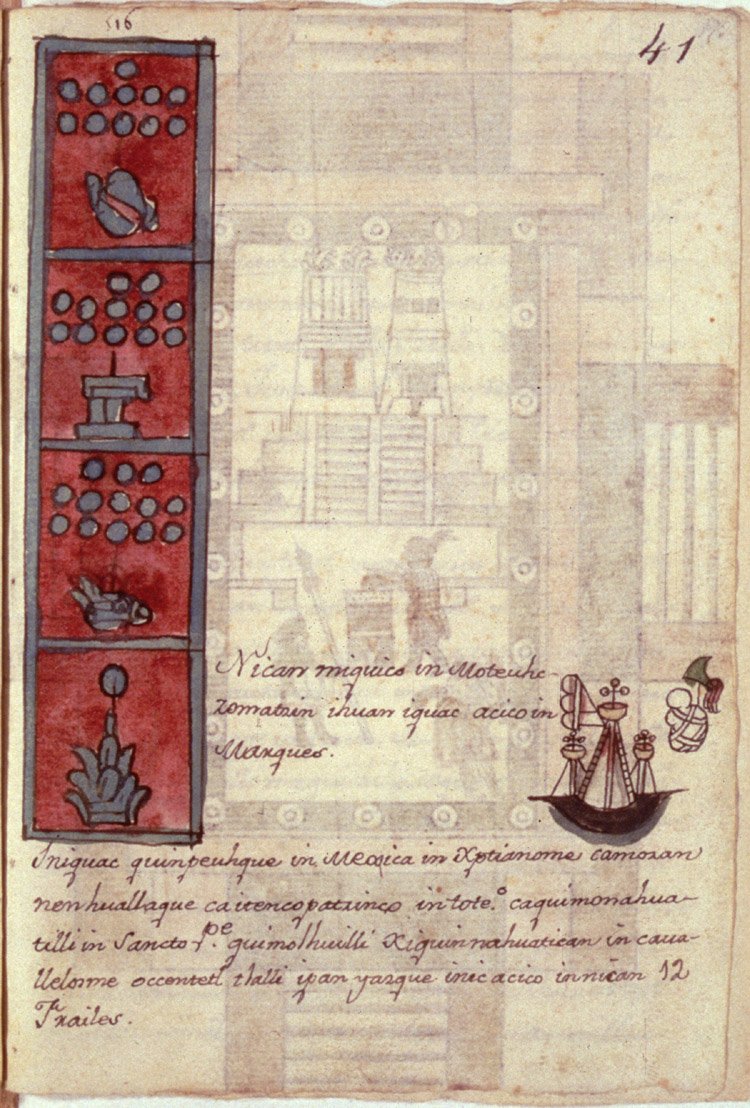 516
41
Nican miquico in Moteuhc-
zomatzin ihuan iquac acico in
Marques.
Iniquac quinpeuhque in Mexica in Xptianome camozan
nenhuallaque caitencopatzinco intote.º caquimonahua-
tilli in Sancto P.e quimolhuilli Xiquinnahuatican in cava-
lleosme occentetl tlalli ipan yazque inic acico in nican 12
Frailes.